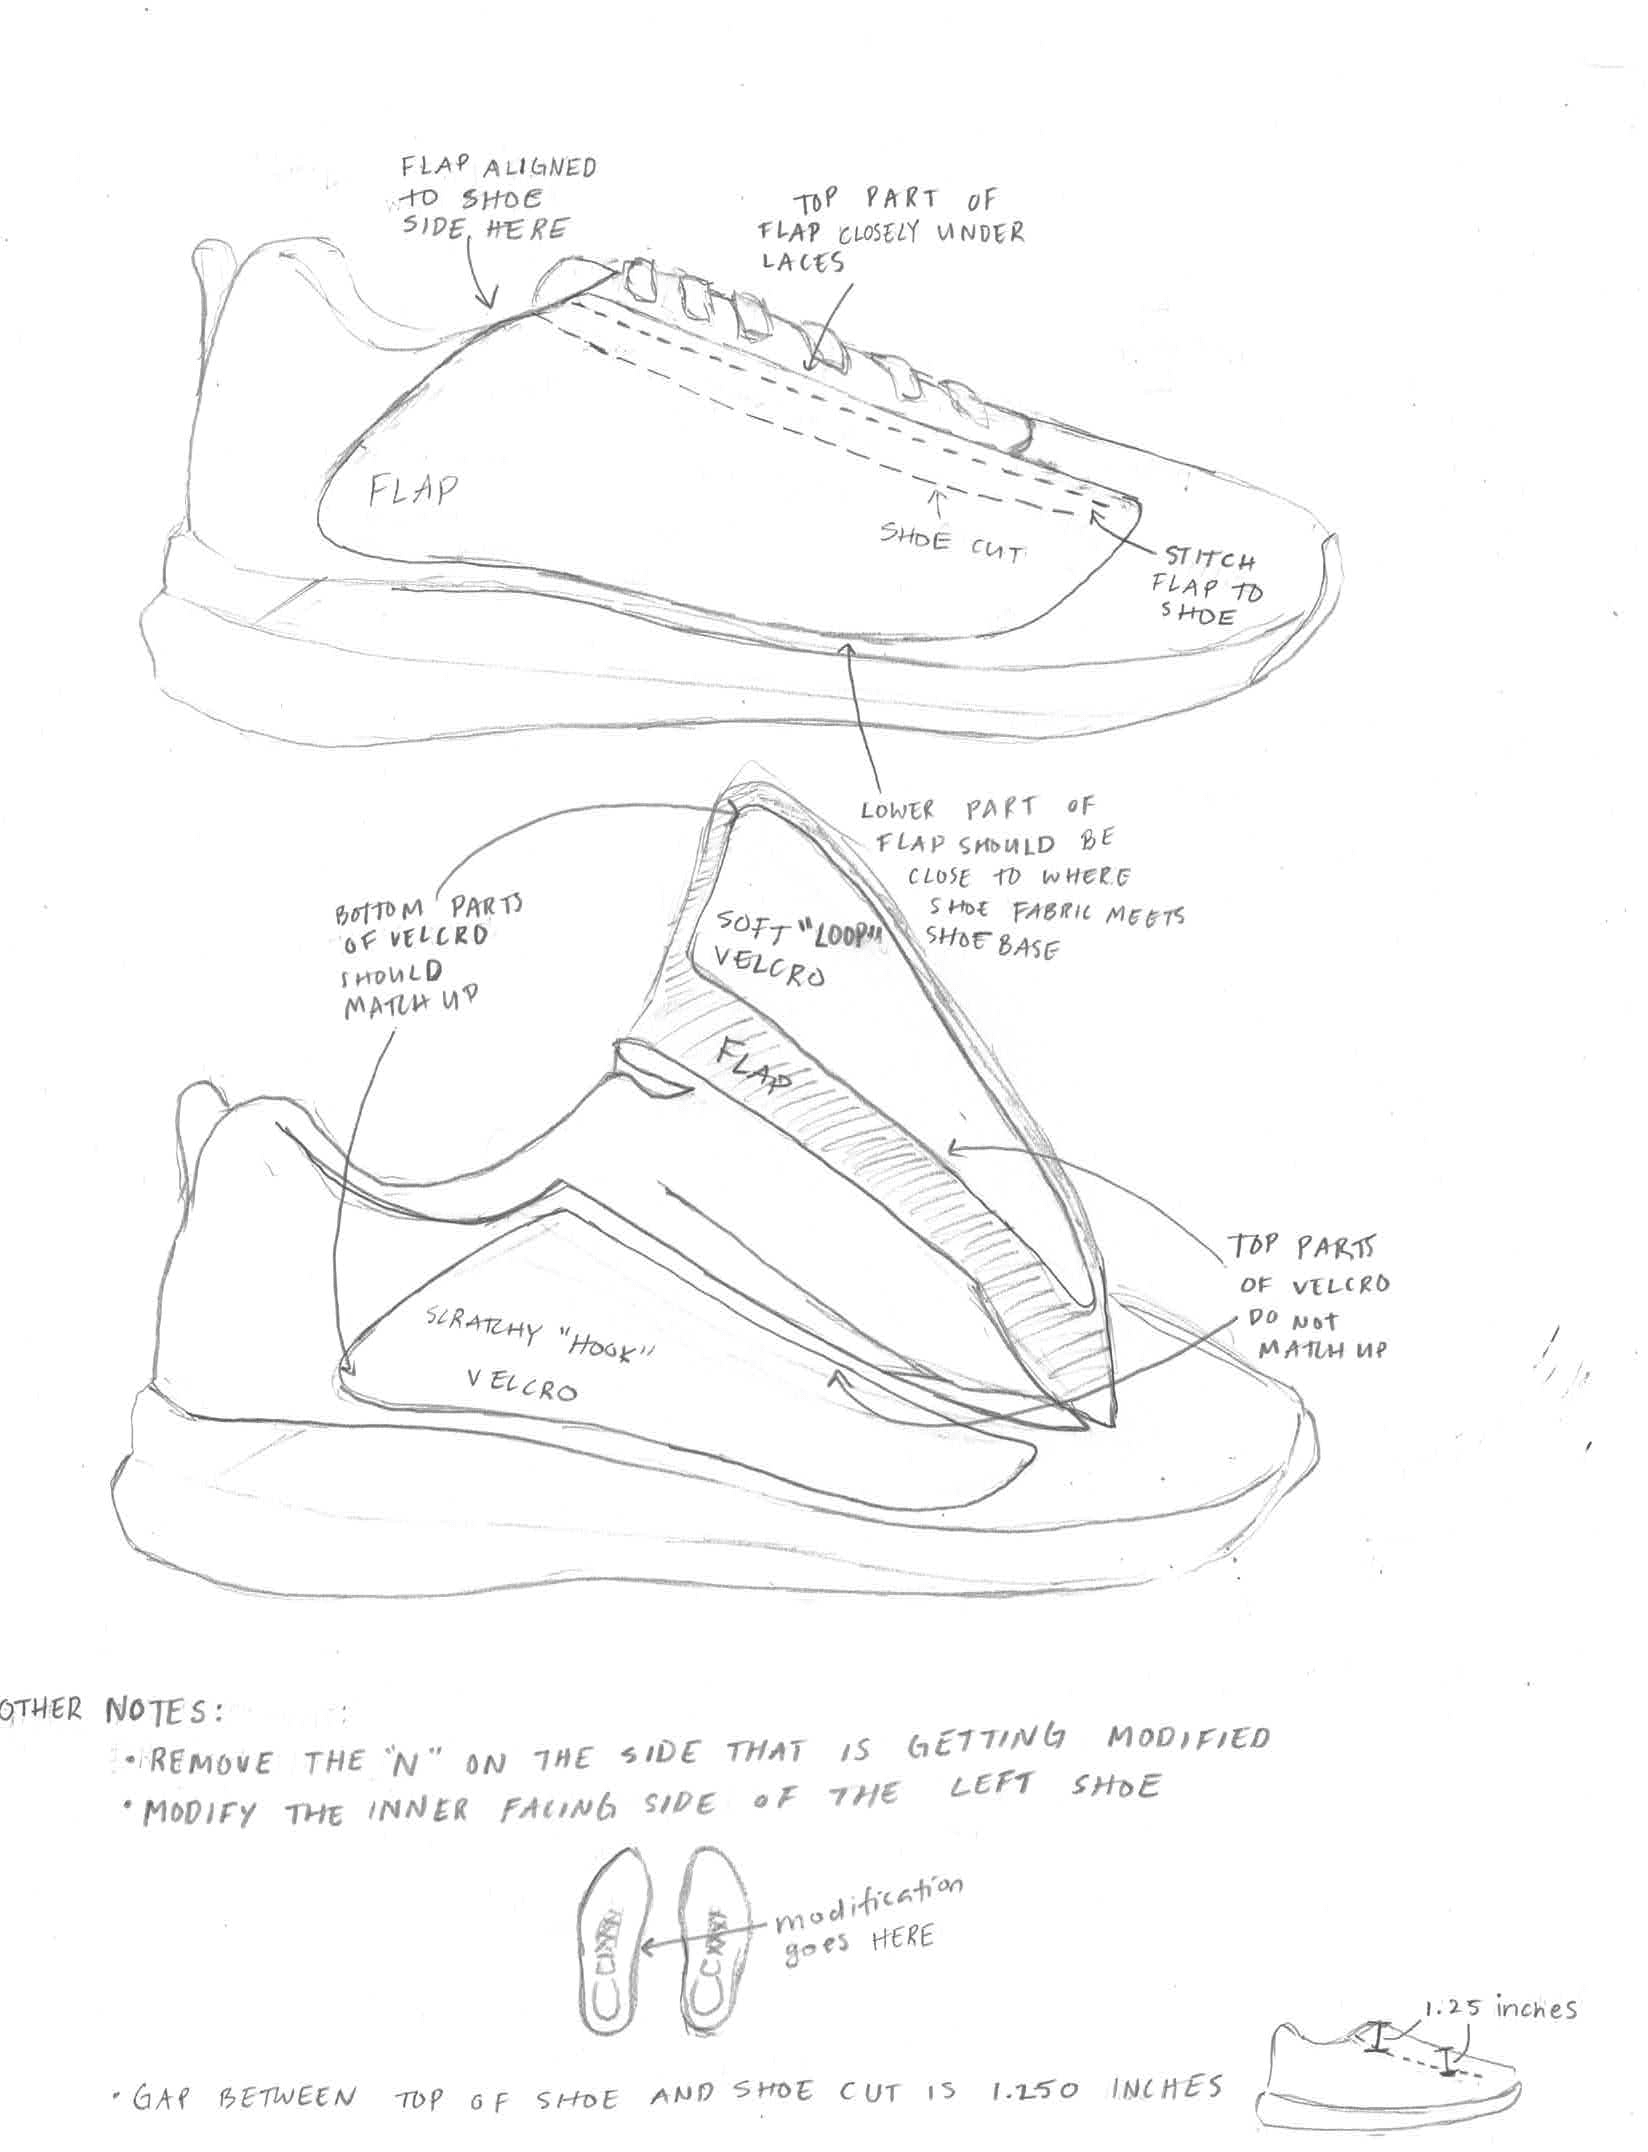 FLAP ALIGNED
TO SHOE
SIDE HERE
TOP PART OF
FLAP CLOSELY UNDER
LACES
FLAP
SHOE CUT
STITCH
FLAP TO
SHOE
LOWER PART OF
FLAP SHOULD BE
CLOSE TO WHERE
SHOE FABRIC MEETS
SHOE BASE
BOTTOM PARTS
OF VELCRO
SHOULD
MATCH UP
SOFT "LOOP"
VELCRO
FLAP
TOP PARTS
OF VELCRO
DO NOT
MATCH UP
SCRATCHY "HOOK"
VELCRO
OTHER NOTES:
• REMOVE THE "N" ON THE SIDE THAT IS GETTING MODIFIED
• MODIFY THE INNER FACING SIDE OF THE LEFT SHOE
modification
goes HERE
1.25 inches
• GAP BETWEEN TOP OF SHOE AND SHOE CUT IS 1.250 INCHES